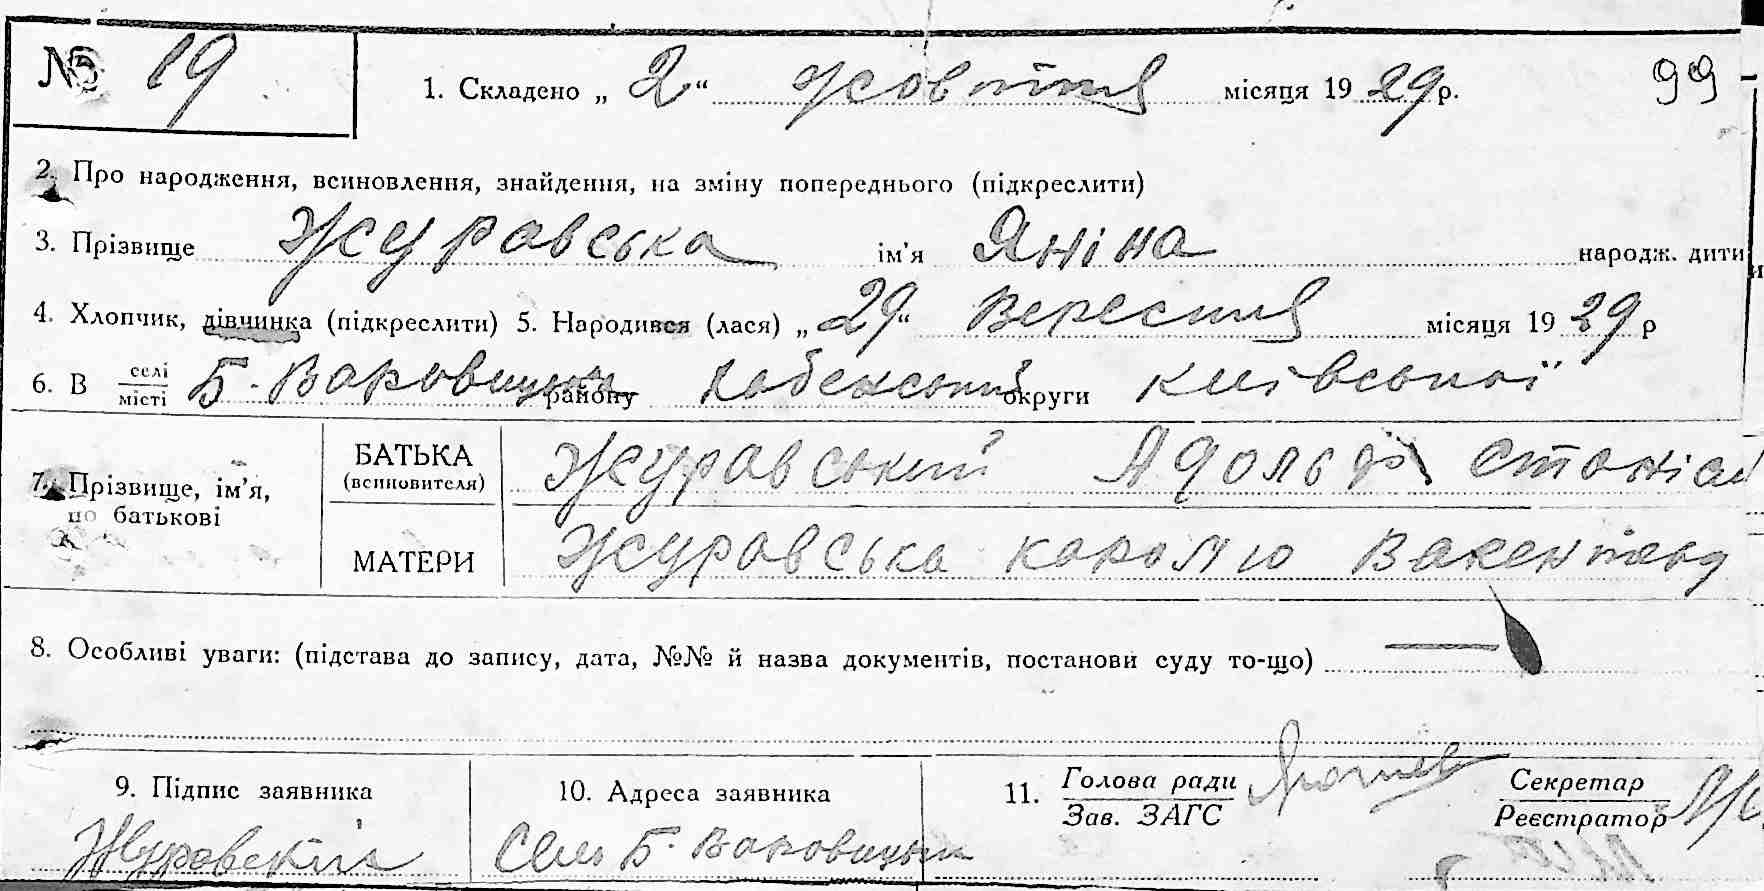 № 19 1. Складено „2“ жовтня місяця 1929 р. 99
2. Про народження, всиновлення, знайдення, на зміну попереднього (підкреслити)
3. Прізвище Журавська ім’я Яніна народж. дити
4. Хлопчик, дівчинка (підкреслити) 5. Народився (лася) „29“ Вересня місяця 1929 р
6. В селі місті Б. району округи Київської
7. Прізвище, ім’я, по батькові
БАТЬКА (всиновителя) Журавський Адольф Станісл
МАТЕРИ Журавська
8. Особливі уваги: (підстава до запису, дата, №№ й назва документів, постанови суду то-що) —
9. Підпис заявника
Журовский
10. Адреса заявника
Село Б.
11. Голова ради
Зав. ЗАГС
Секретар
Реєстратор